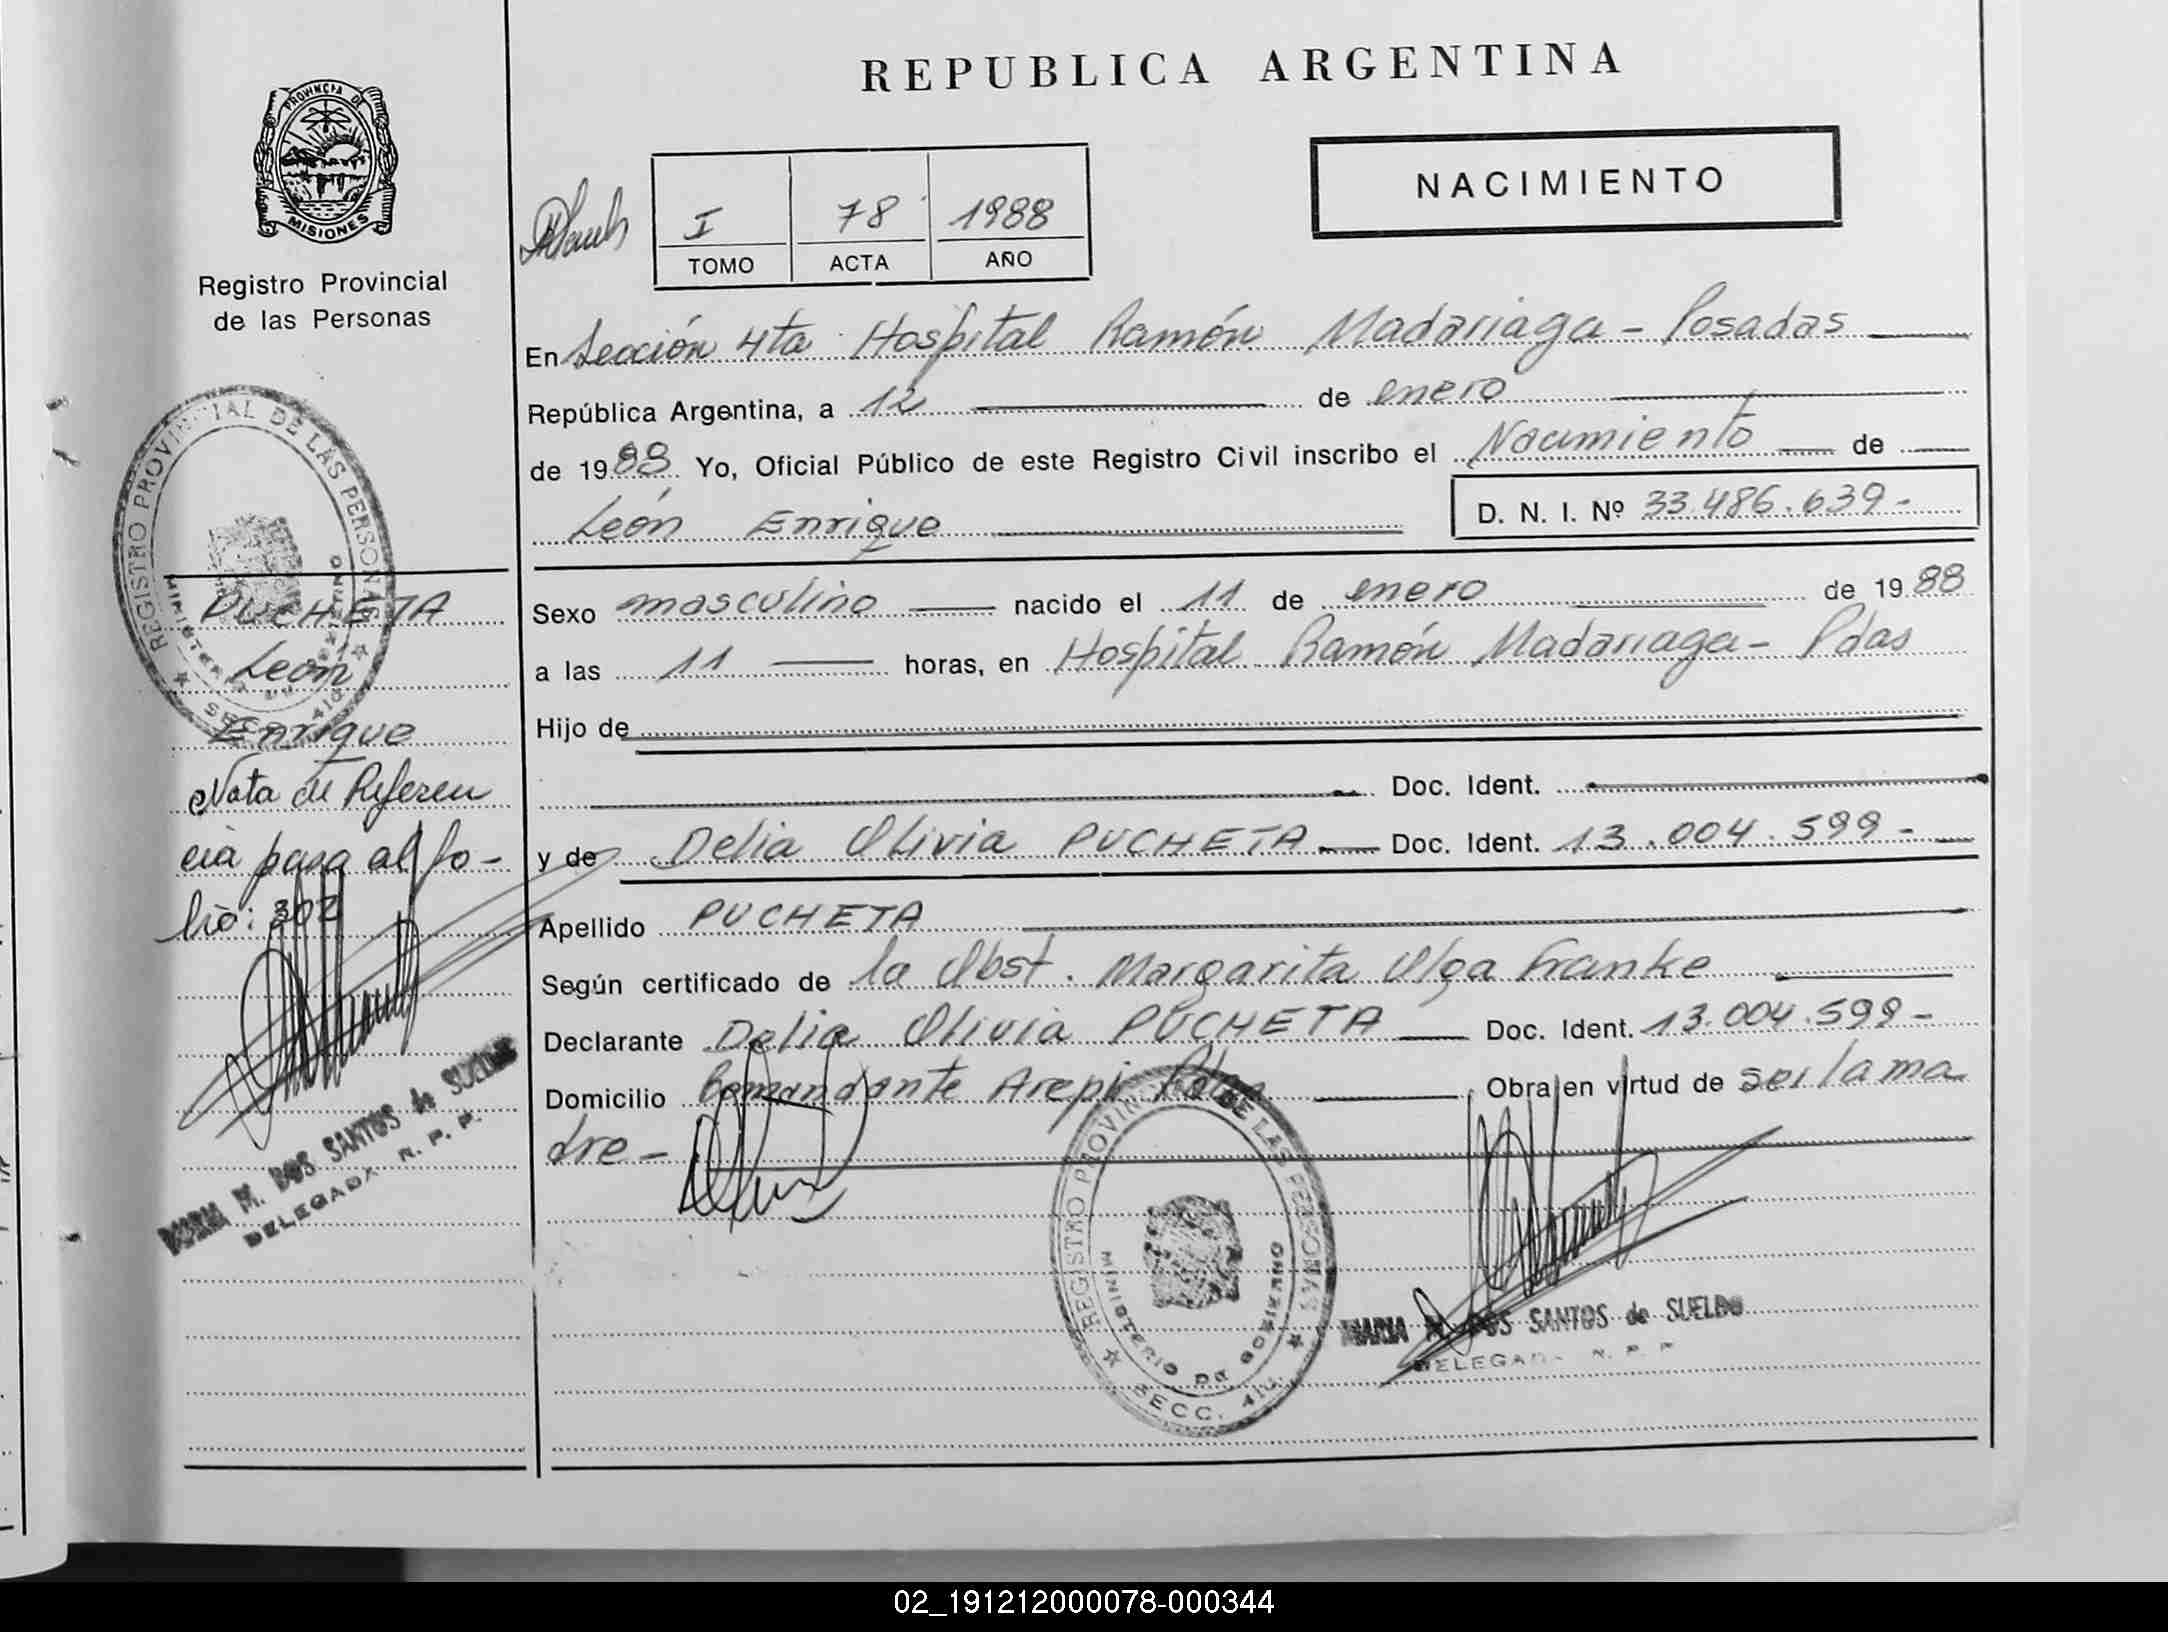 REPUBLICA ARGENTINA
PROVINCIA DE
MISIONES
Registro Provincial
de las Personas
NACIMIENTO
I 78 1988
TOMO ACTA AÑO
En Sección 4ta Hospital Ramón Madariaga - Posadas
República Argentina, a 12 de enero
de 1988 Yo, Oficial Público de este Registro Civil inscribo el Nacimiento de
León Enrique D. N. I. Nº 33.486.639-
Sexo masculino nacido el 11 de enero de 1988
a las 11 horas, en Hospital Ramón Madariaga - Pdas
Hijo de
Doc. Ident.
y de Delia Olivia PUCHETA Doc. Ident. 13.004.599-
Apellido PUCHETA
Según certificado de la Obst. Margarita Olga Franke
Declarante Delia Olivia PUCHETA Doc. Ident. 13.004.599-
Domicilio Comandante Obra en virtud de ser la ma
dre -
REGISTRO PROVINCIAL DE LAS PERSONAS
MINISTERIO DE GOBIERNO
SECC. 4ta
MARIA M. DOS SANTOS de SUELDO
DELEGADA R. P. P.
REGISTRO PROVINCIAL DE LAS PERSONAS
MINISTERIO DE GOBIERNO
PUCHETA
León
Enrique
Nota de Referen
cia pasa al fo-
lio: 302
MARIA M. DOS SANTOS de SUELDO
DELEGADA R. P. P.
02_191212000078-000344